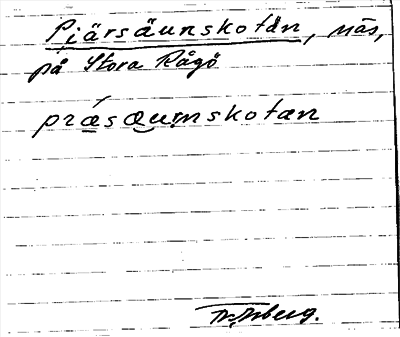 Piärsäunskotän, näs,
på Stora Rågö
präsäumskotan